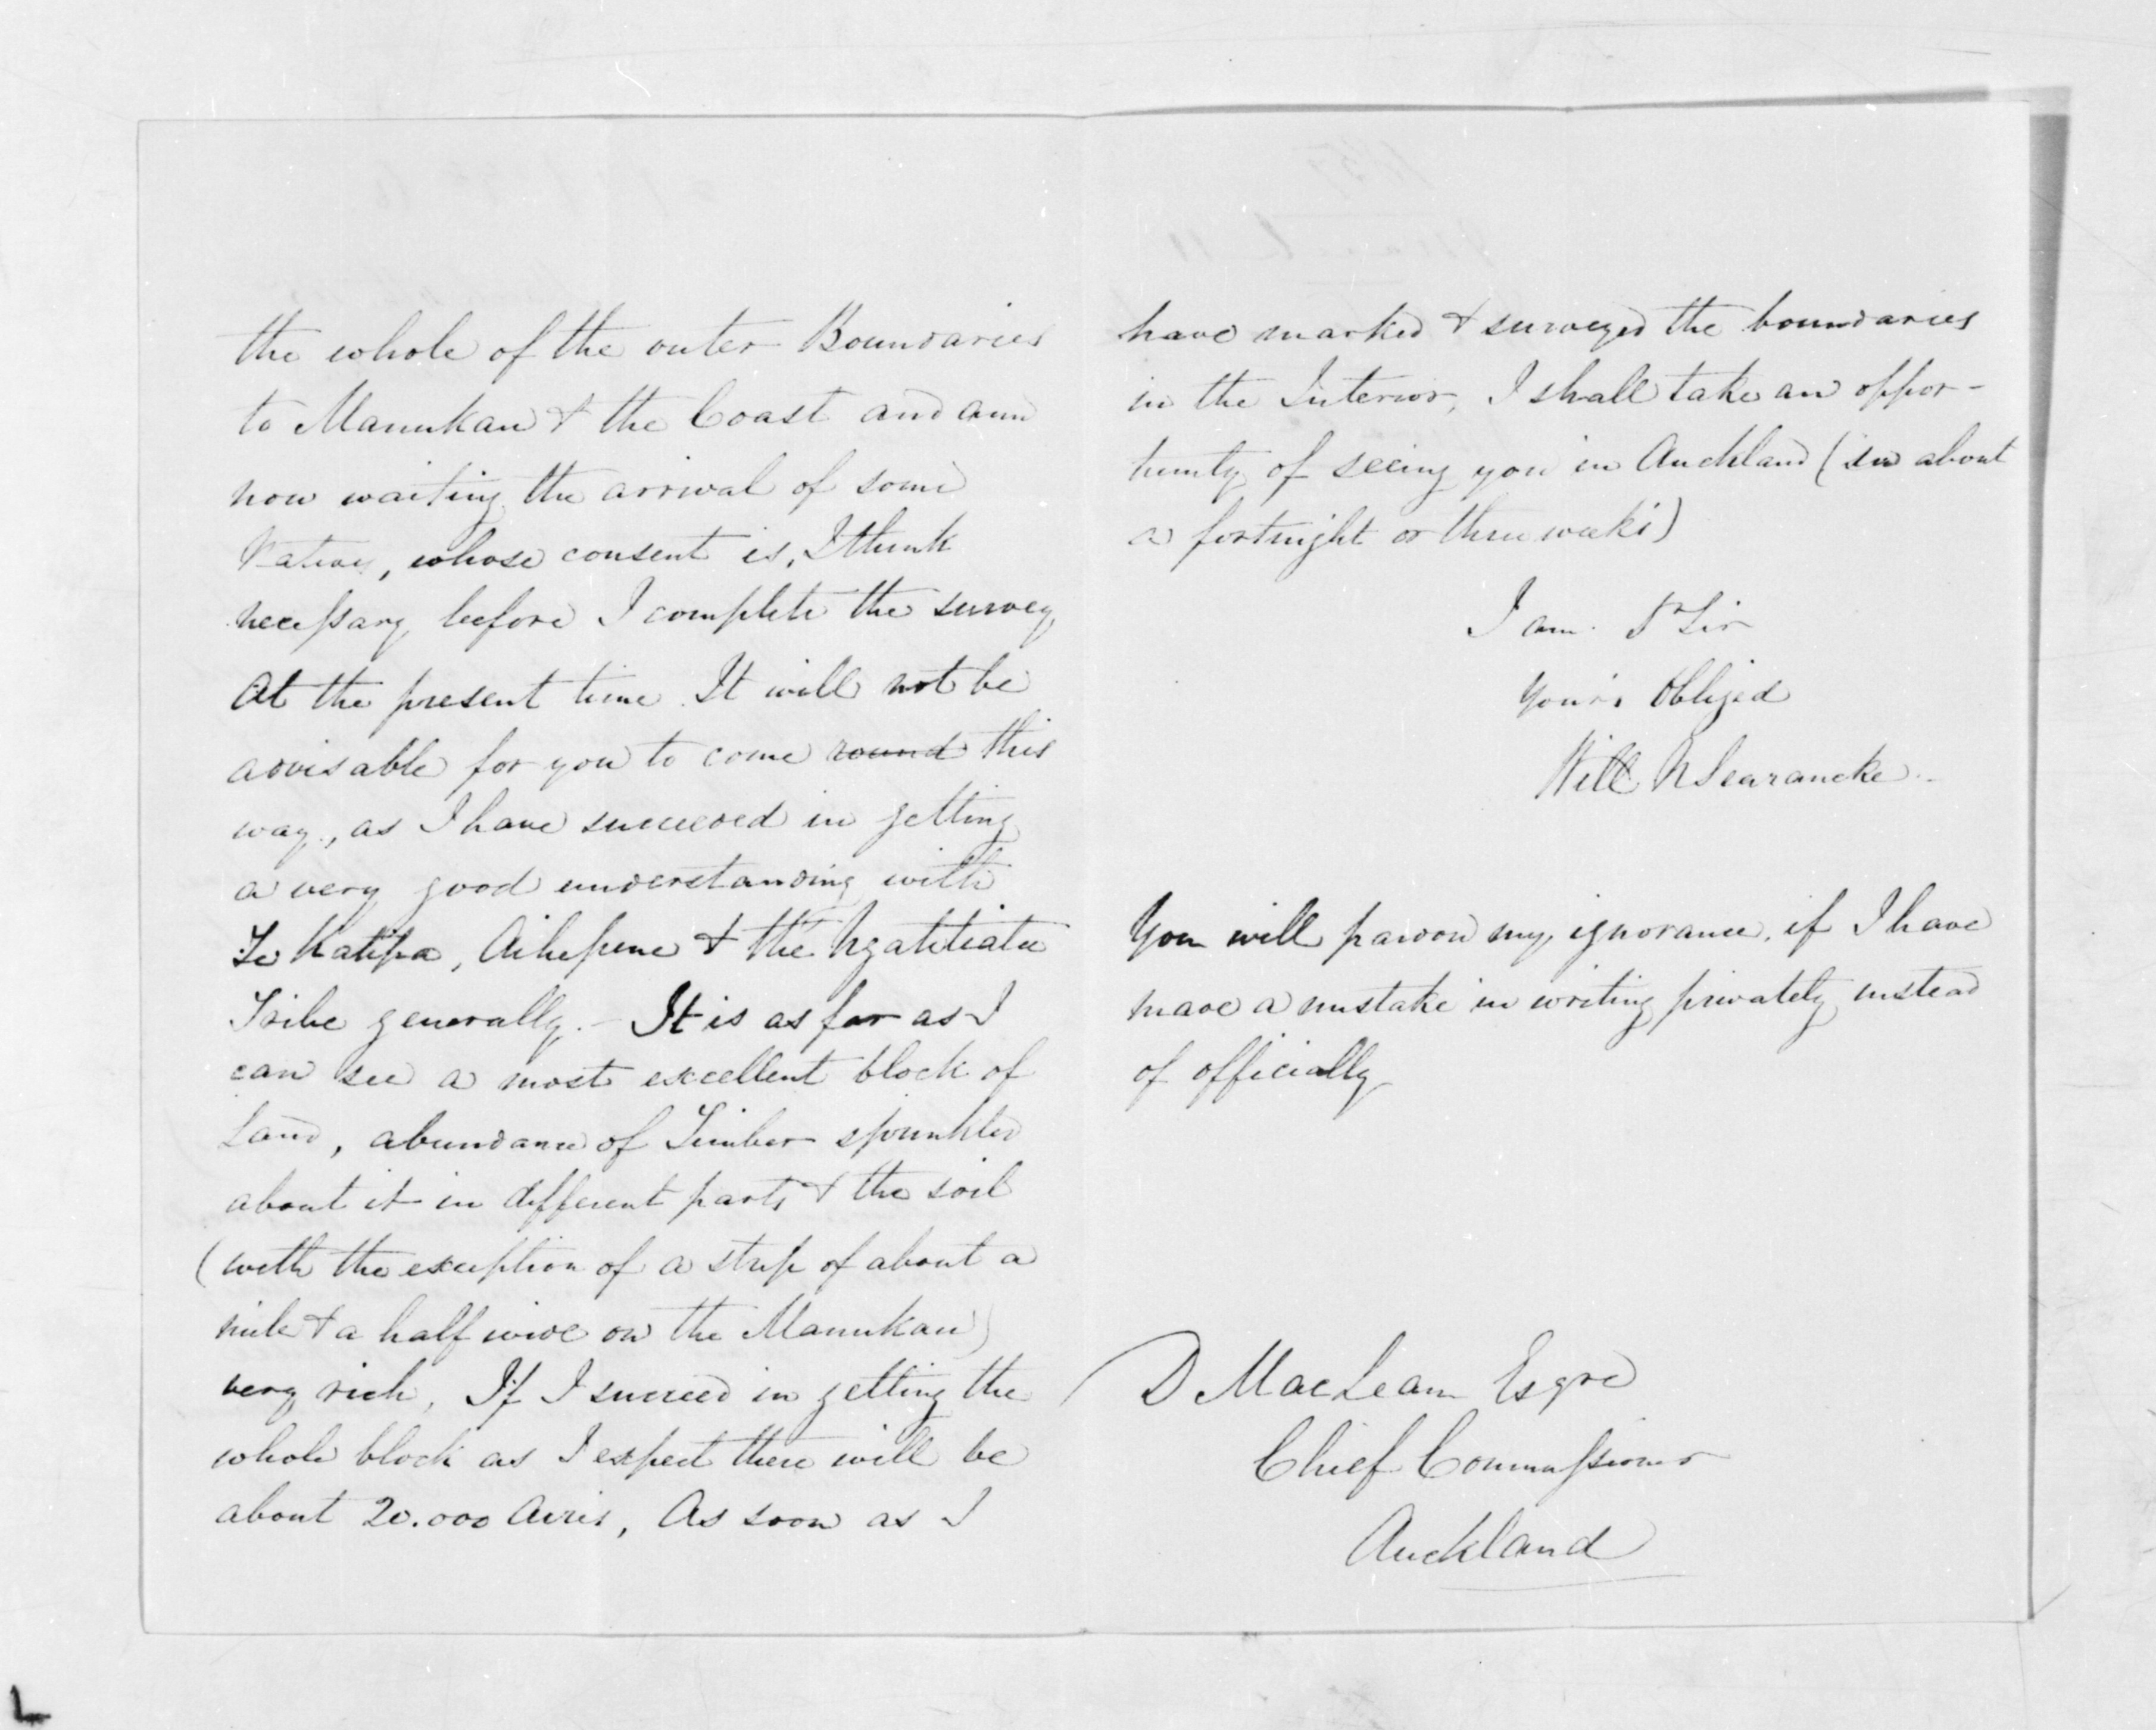 the whole of the outer Boundaries
to Manukau & the Coast and am
now waiting the arrival of some
Natives, whose consent is, I think
necessary before I complete the survey,
At the present time. It will not be
advisable for you to come round this
way, as I have succeeded in getting
a very good understanding with
Te Katipa, Aihepene & the Ngatitiata
Tribe generally. - It is as far as I
can see a most excellent block of
Land, abundance of Timber sprinkled
about it in different parts & the soil
(with the exception of a strip of about a
mile & a half wide on the Manukau)
very rich, If I succeed in getting the
whole block as I expect there will be
about 20.000 Acres, As soon as I
have marked & surveyed the boundaries
in the Interior, I shall take an oppor-
tunity of seeing you in Auckland (in about
a fortnight or three weeks)
I am. Dr Sir
Your's Obliged
Will N Searancke
You will pardon my ignorance, if I have
made a mistake in writing privately instead
of officially
D MacLean Esqre
Chief Commissioner
Auckland